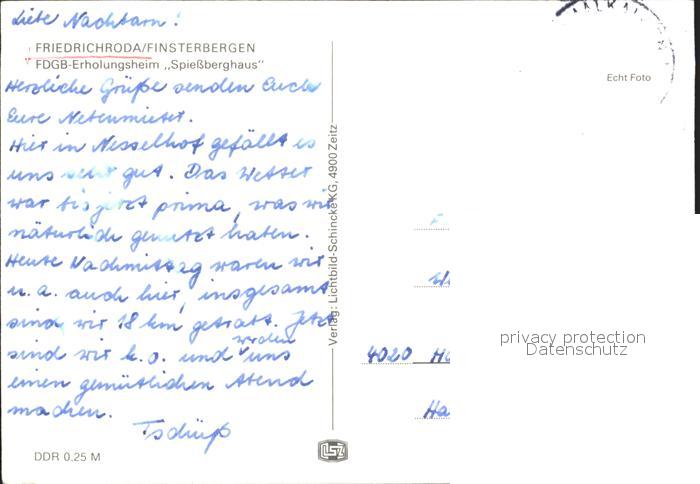 Liebe Nachbarn!
FRIEDRICHRODA/FINSTERBERGEN
FDGB-Erholungsheim „Spießberghaus"
Herzliche Grüße senden Euch
Eure Nebenmieter.
Hier in Nesselhof gefällt es
uns sehr gut. Das Wetter
war bis jetzt prima, was wir
natürlich genutzt haben.
Heute Nachmittag waren wir
u. a. auch hier, insgesamt
sind wir 18 km getrabt. Jetzt
sind wir k. o. und werden uns
einen gemütlichen Abend
machen.
Tschüß
DDR 0,25 M
Verlag: Lichtbild-Schincke KG, 4900 Zeitz
Echt Foto
4020 Ha
privacy protection
Datenschutz